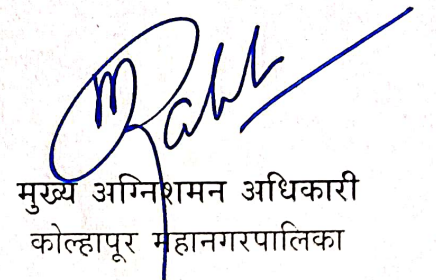 मुख्य अग्निशमन अधिकारी
कोल्हापूर महानगरपालिका